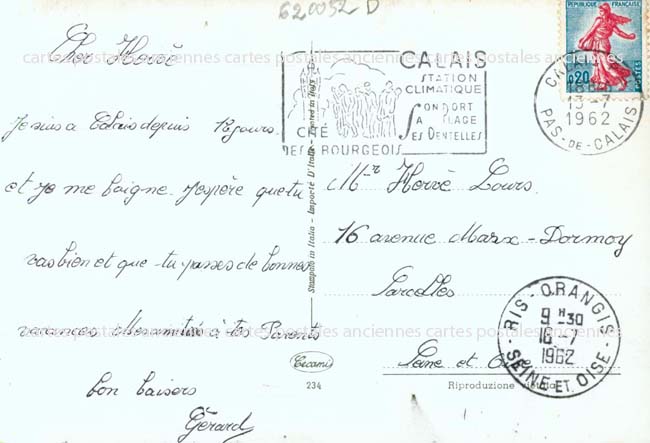 620052 D
Cher Hervé
Je suis à Calais depuis 12 jours
et je me baigne. J'espère que tu
vas bien et que tu passes de bonnes
vacances. Mes amitiés à tes Parents
bon baisers
Gérard
CITÉ
DES BOURGEOIS
CALAIS
STATION
CLIMATIQUE
SON PORT
SA PLAGE
SES DENTELLES
REPUBLIQUE FRANÇAISE
0,20
POSTES
CALAIS
13-7
1962
PAS-DE-CALAIS
Mr Hervé Lours
16 avenue Marx-Dormoy
Parcelles
Seine et Oise
RIS-ORANGIS
9 H 30
16-7
1962
SEINE-ET-OISE
Stampato in Italia - Importé D'Italie - Printed in Italy
Cecami
234
Riproduzione vietata
cartes postales anciennes cartes postales anciennes